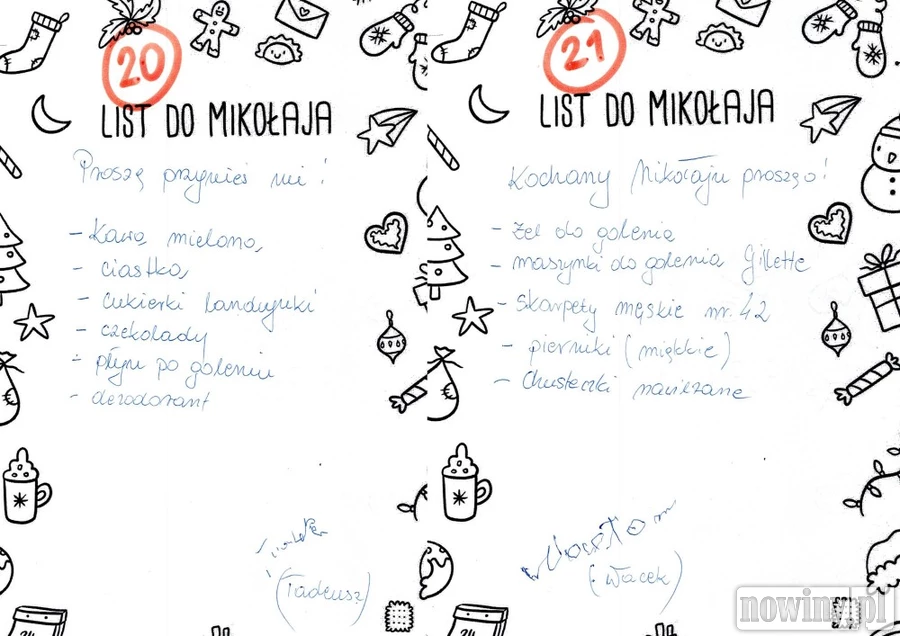 20
LIST DO MIKOŁAJA
Proszę przynieś mi!
- Kawą mieloną,
- ciastka,
- cukierki landrynki
- czekolady
- płyn po goleniu
- dezodorant
(Tadeusz)
24
21
LIST DO MIKOŁAJA
Kochany Mikołaju proszę o!
- żel do golenia
- maszynki do golenia Gillette
- skarpety męskie nr. 42
- pierniki (miękkie)
- chusteczki nawilżane
(Wacek)
24
nowiny.pl